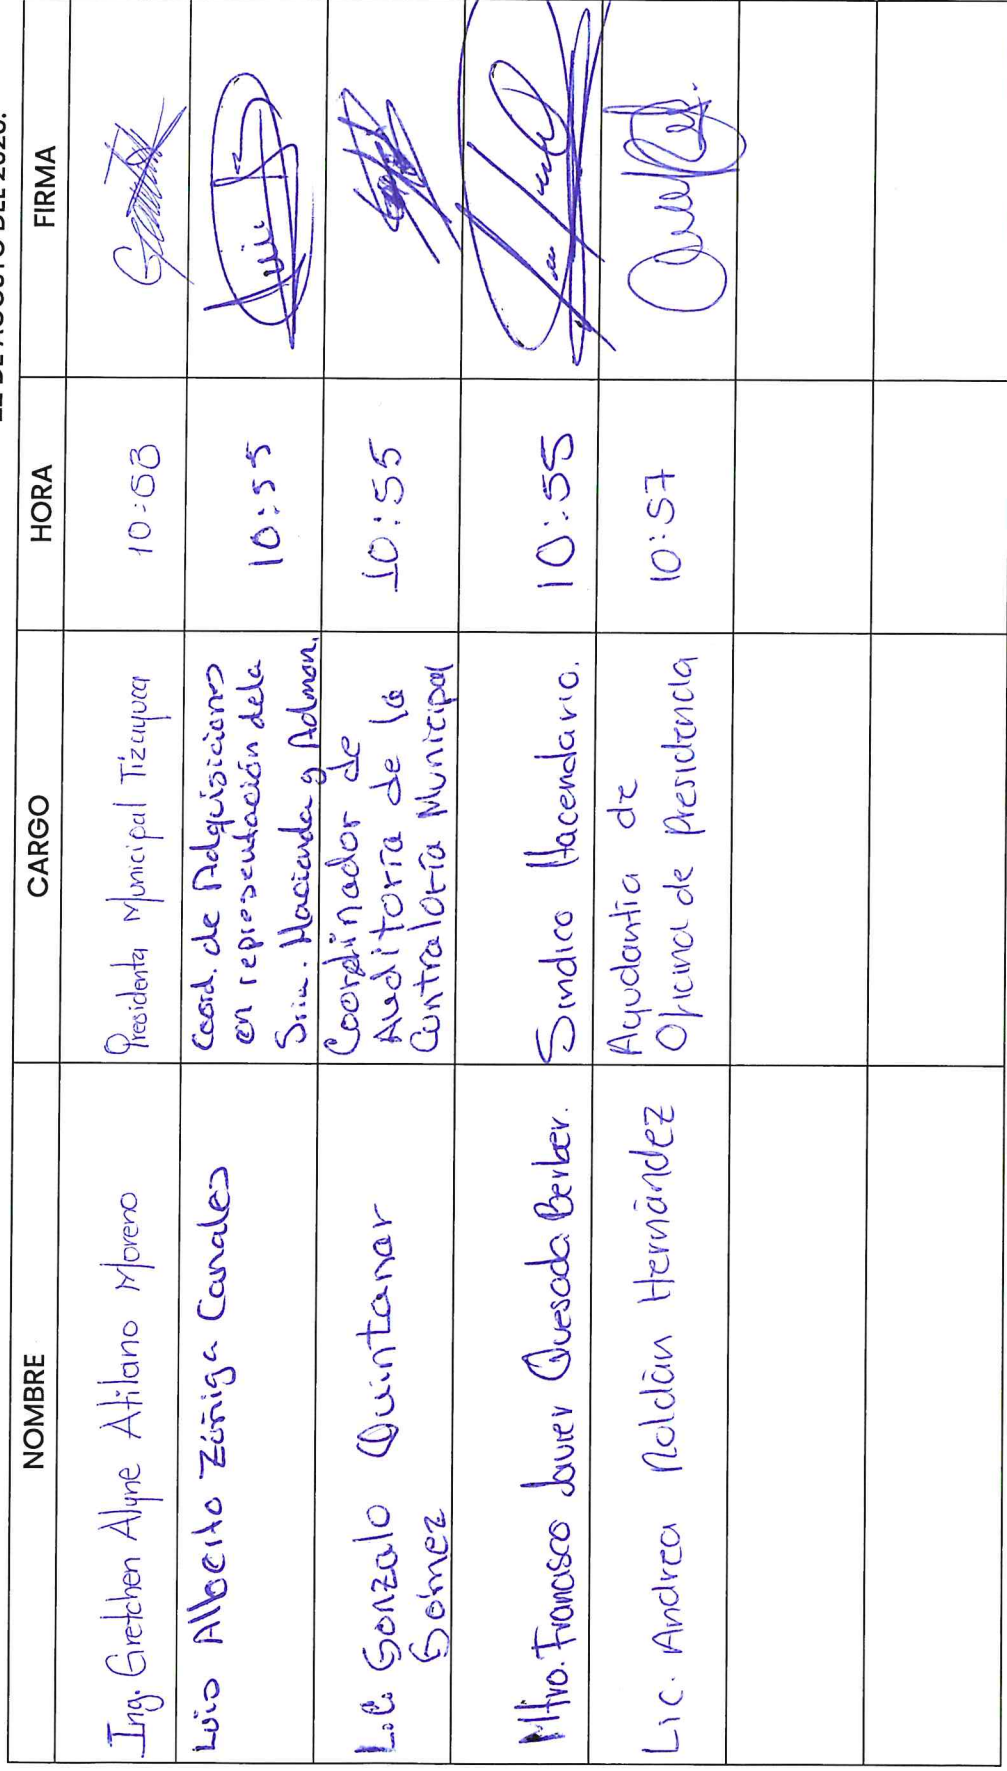 NOMBRE CARGO HORA FIRMA
Ing. Gretchen Alyne Atilano Moreno
Presidenta Municipal Tizayuca
10:53
Luis Alberto Zúñiga Canales
Coord. de Adquisiciones
en representación de la
Sria. Hacienda y Admon.
10:55
L.C. Gonzalo Quintanar
Gómez
Coordinador de
Auditoría de la
Contraloría Municipal
10:55
Mtro. Francisco Javier Quesada Berber.
Sindico Hacendario.
10:55
Lic. Andrea Roldán Hernández
Ayudantia de
Oficina de Presidencia
10:57